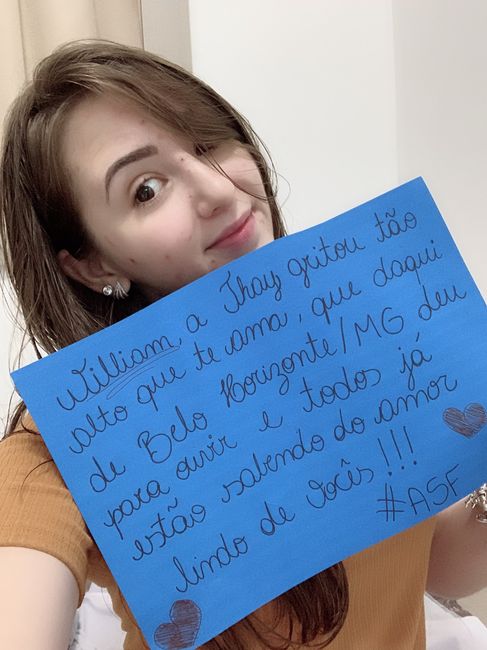 William, a Thay gritou tão
alto que te ama, que daqui
de Belo Horizonte/MG deu
para ouvir e todos já
estão sabendo do amor
lindo de vocês!!!
#ASF